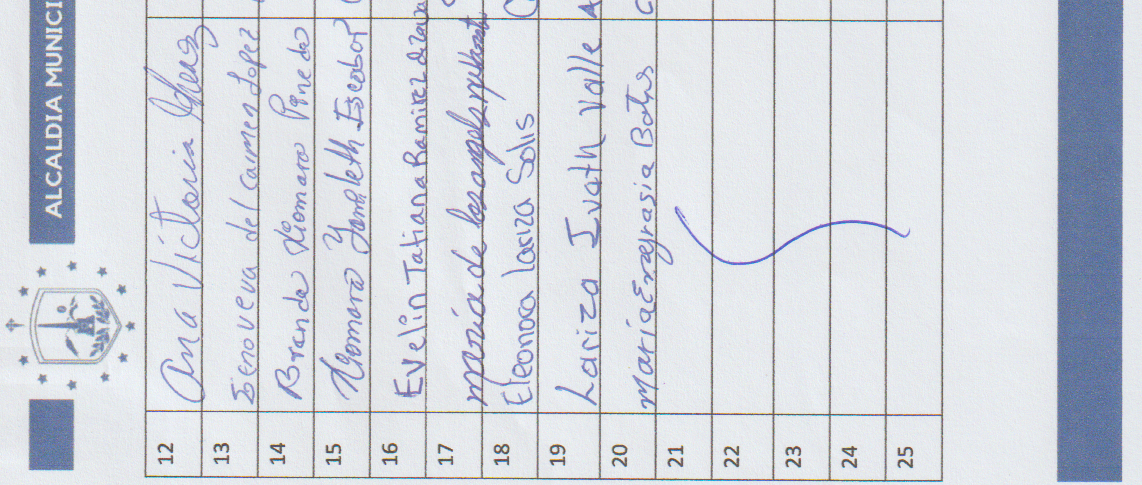 ALCALDIA MUNICI
12 Ana Victoria
13 Genoveva del Carmen Lopez
14 Brenda Xiomara Pineda
15 Xiomara Yamileth Escobar
16 Evelin Tatiana Ramirez
17 maria de los angeles
18 Eleonora Lariza Solis
19 Lariza Ivath Valle A
20 María Engrasia C
21
22
23
24
25